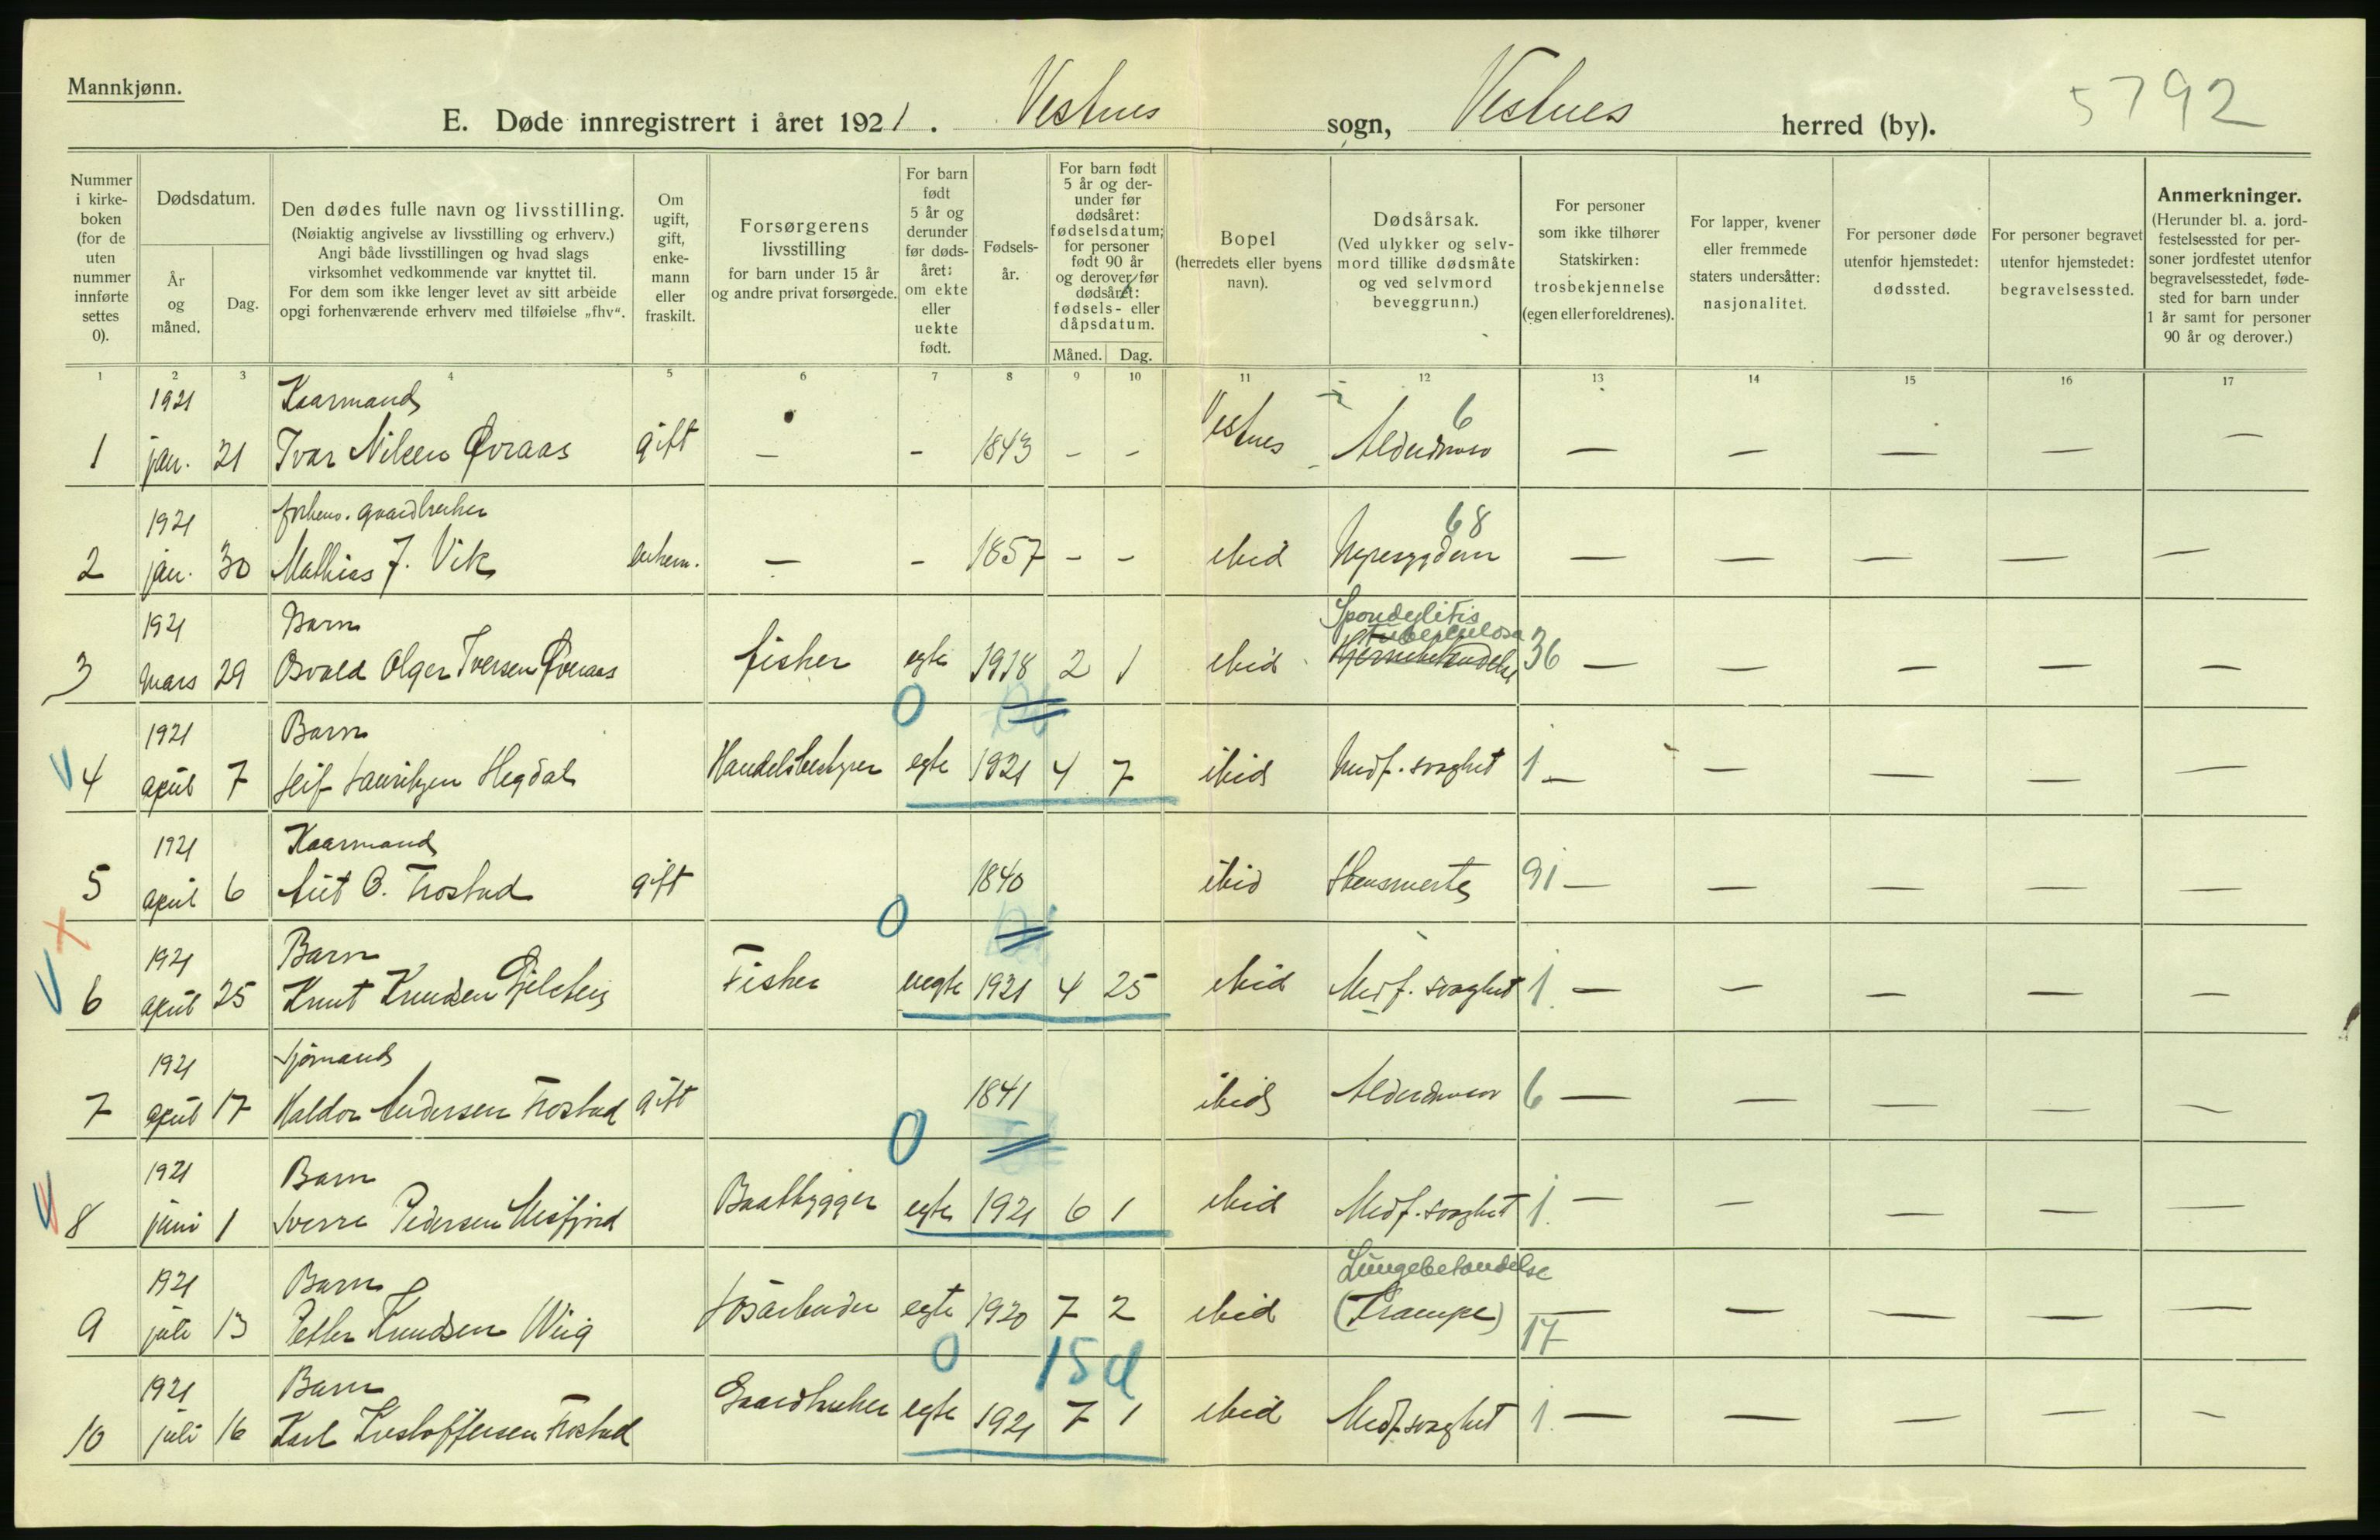 Mannkjønn.
E. Døde innregistrert i året 1921. Vestnes sogn, Vestnes herred (by).
5792
Nummer i kirkeboken (for de uten nummer innførte settes 0).
Dødsdatum.
År og måned.
Dag.
Den dødes fulle navn og livsstilling.
(Nøiaktig angivelse av livsstilling og erhverv.)
Angi både livsstillingen og hvad slags
virksomhet vedkommende var knyttet til.
For dem som ikke lenger levet av sitt arbeide
opgi forhenværende erhverv med tilføielse „fhv“.
Om ugift, gift, enkemann eller fraskilt.
Forsørgerens livsstilling
for barn under 15 år
og andre privat forsørgede.
For barn født 5 år og derunder før dødsåret: om ekte eller uekte født.
Fødselsår.
For barn født 5 år og derunder før dødsåret: fødselsdatum; for personer født 90 år og derover før dødsåret: fødsels- eller dåpsdatum.
Måned.
Dag.
Bopel
(herredets eller byens navn).
Dødsårsak.
(Ved ulykker og selvmord tillike dødsmåte og ved selvmord beveggrunn.)
For personer som ikke tilhører Statskirken: trosbekjennelse (egen eller foreldrenes).
For lapper, kvener eller fremmede staters undersåtter: nasjonalitet.
For personer døde utenfor hjemstedet: dødssted.
For personer begravet utenfor hjemstedet: begravelsessted.
Anmerkninger.
(Herunder bl. a. jordfestelsessted for personer jordfestet utenfor begravelsesstedet, fødested for barn under 1 år samt for personer 90 år og derover.)
1 2 3 4 5 6 7 8 9 10 11 12 13 14 15 16 17
1921 Kaarmand 6
1 jan. 21 Ivar Nilsen Øvraas gift — – 1843 – – Vestnes Alderdom — — — — —
1921 forhenv. gaardbruker 68
2 jan. 30 Mathias J. Vik enkem. — – 1857 – – ibid Nyresygdom — — — — —
1921 Barn Spondylitis tuberculosa
3 mars 29 Osvald Olger Iversen Øveraas fisker egte 1918 2 1 ibid Hjernebetændelse 36 — — — — —
0
1921 Barn
4 april 7 Leif Lauritzen Hegdal Handelsbestyrer egte 1921 4 7 ibid Medf. svaghet 1 — — — — —
1921 Kaarmand
5 april 6 O. Frostad gift 1840 ibid 91 — — — — —
0
1921 Barn
6 april 25 Knut Knudsen Fisker uegte 1921 4 25 ibid Medf. svaghet 1 — — — — —
1921 Sjømand
7 april 17 Haldor Andersen Frostad gift 1841 ibid Alderdom 6 — — — — —
0
1921 Barn
8 juni 1 Sverre Pedersen Misfjord Baatbygger egte 1921 6 1 ibid Medf. svaghet 1 — — — — —
1921 Barn Lungebetændelse
9 juli 13 Petter Knudsen Wiig Løsarbeider egte 1920 7 2 ibid (Krampe) 17 — — — — —
0 15 d
1921 Barn
10 juli 16 Karl Kristoffersen Frostad Gaardbruker egte 1921 7 1 ibid Medf. svaghet 1 — — — — —